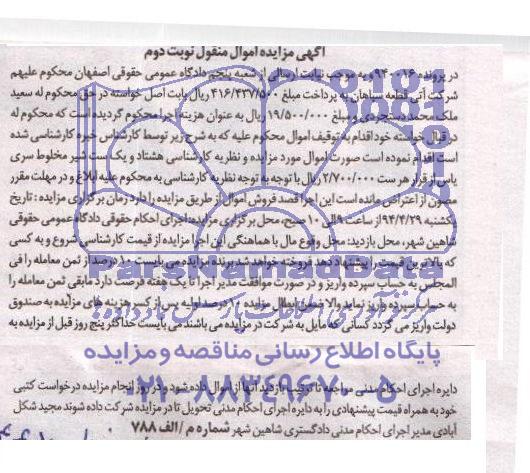 آگهی مزایده اموال منقول نوبت دوم
در پرونده ۹۴۰۰۱۶ و به موجب نیابت ارسالی از شعبه پنجم دادگاه عمومی حقوقی اصفهان محکوم علیهم
شرکت آتی قطعه سپاهان به پرداخت مبلغ ۴۱۶/۴۳۷/۵۰۰ ریال بابت اصل خواسته در حق محکوم له سعید
ملک محمد دستجردی و مبلغ ۱۹/۵۰۰/۰۰۰ ریال به عنوان هزینه اجرا محکوم گردیده است که محکوم له
در قبال خواسته خود اقدام به توقیف اموال محکوم علیه که به شرح زیر توسط کارشناس خبره کارشناسی شده
است اقدام نموده است صورت اموال مورد مزایده و نظریه کارشناسی هشتاد و یک ست شیر مخلوط سری
یاس از قرار هر ست ۲/۷۰۰/۰۰۰ ریال با توجه به توجه نظریه کارشناسی به محکوم علیه ابلاغ و در مهلت مقرر
مصون از اعتراض مانده است این اجرا قصد فروش اموال از طریق مزایده را دارد زمان برگزاری مزایده : تاریخ
یکشنبه ۹۴/۴/۲۹ از ساعت ۹ الی ۱۰ صبح، محل برگزاری مزایده: اجرای احکام حقوقی دادگاه عمومی حقوقی
شاهین شهر، محل بازدید: محل وقوع مال با هماهنگی این اجرا مزایده از قیمت کارشناسی شروع و به کسی
که بالاترین قیمت را پیشنهاد دهد فروخته خواهد شد برنده مزایده می بایست ۱۰ درصد از ثمن معامله را فی
المجلس به حساب سپرده واریز و در صورت موافقت مدیر اجرا تا یک هفته فرصت دارد مابقی ثمن معامله را
به حساب سپرده واریز نماید والا ضمن ابطال مزایده ۱۰ درصد اولیه پس از کسر هزینه های مزایده به صندوق
دولت واریز می گردد کسانی که مایل به شرکت در مزایده می باشند می بایست حداکثر پنج روز قبل از مزایده به
دایره اجرای احکام مدنی مراجعه تا ترتیب بازدید آنها از اموال داده شود و در روز انجام مزایده درخواست کتبی
خود به همراه قیمت پیشنهادی را به دایره اجرای احکام مدنی تحویل تا در مزایده شرکت داده شوند مجید شکل
آبادی مدیر اجرای احکام مدنی دادگستری شاهین شهر شماره م/الف ۷۸۸
ParsNamadData
پایگاه اطلاع رسانی مناقصه و مزایده
۰۲۱-۸۸۳۴۹۶۷۰-۵